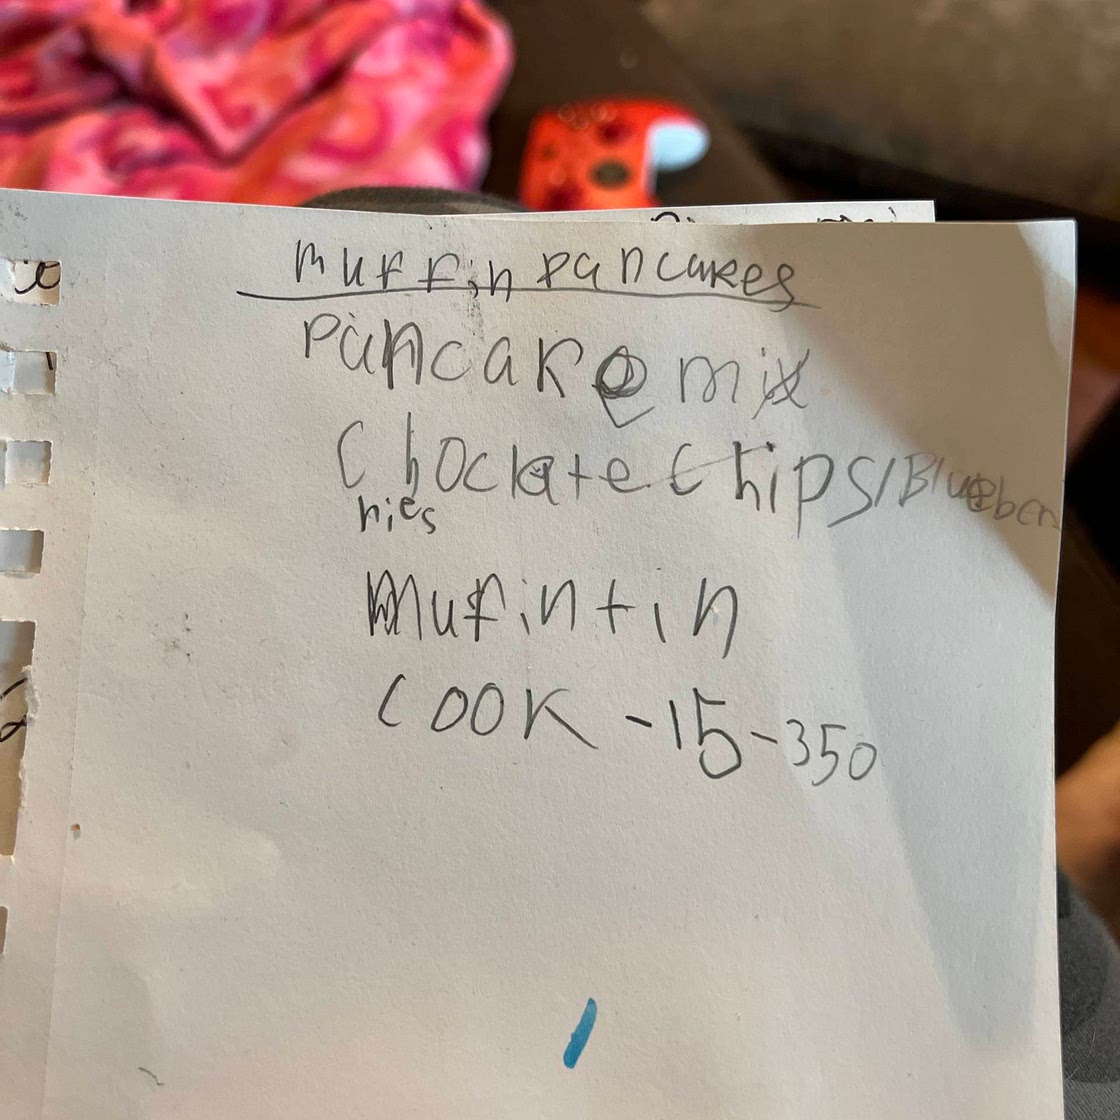 Muffin pancakes
Pancake mix
Choclate Chips/Blueber
ries
Mufin tin
COOK -15-350